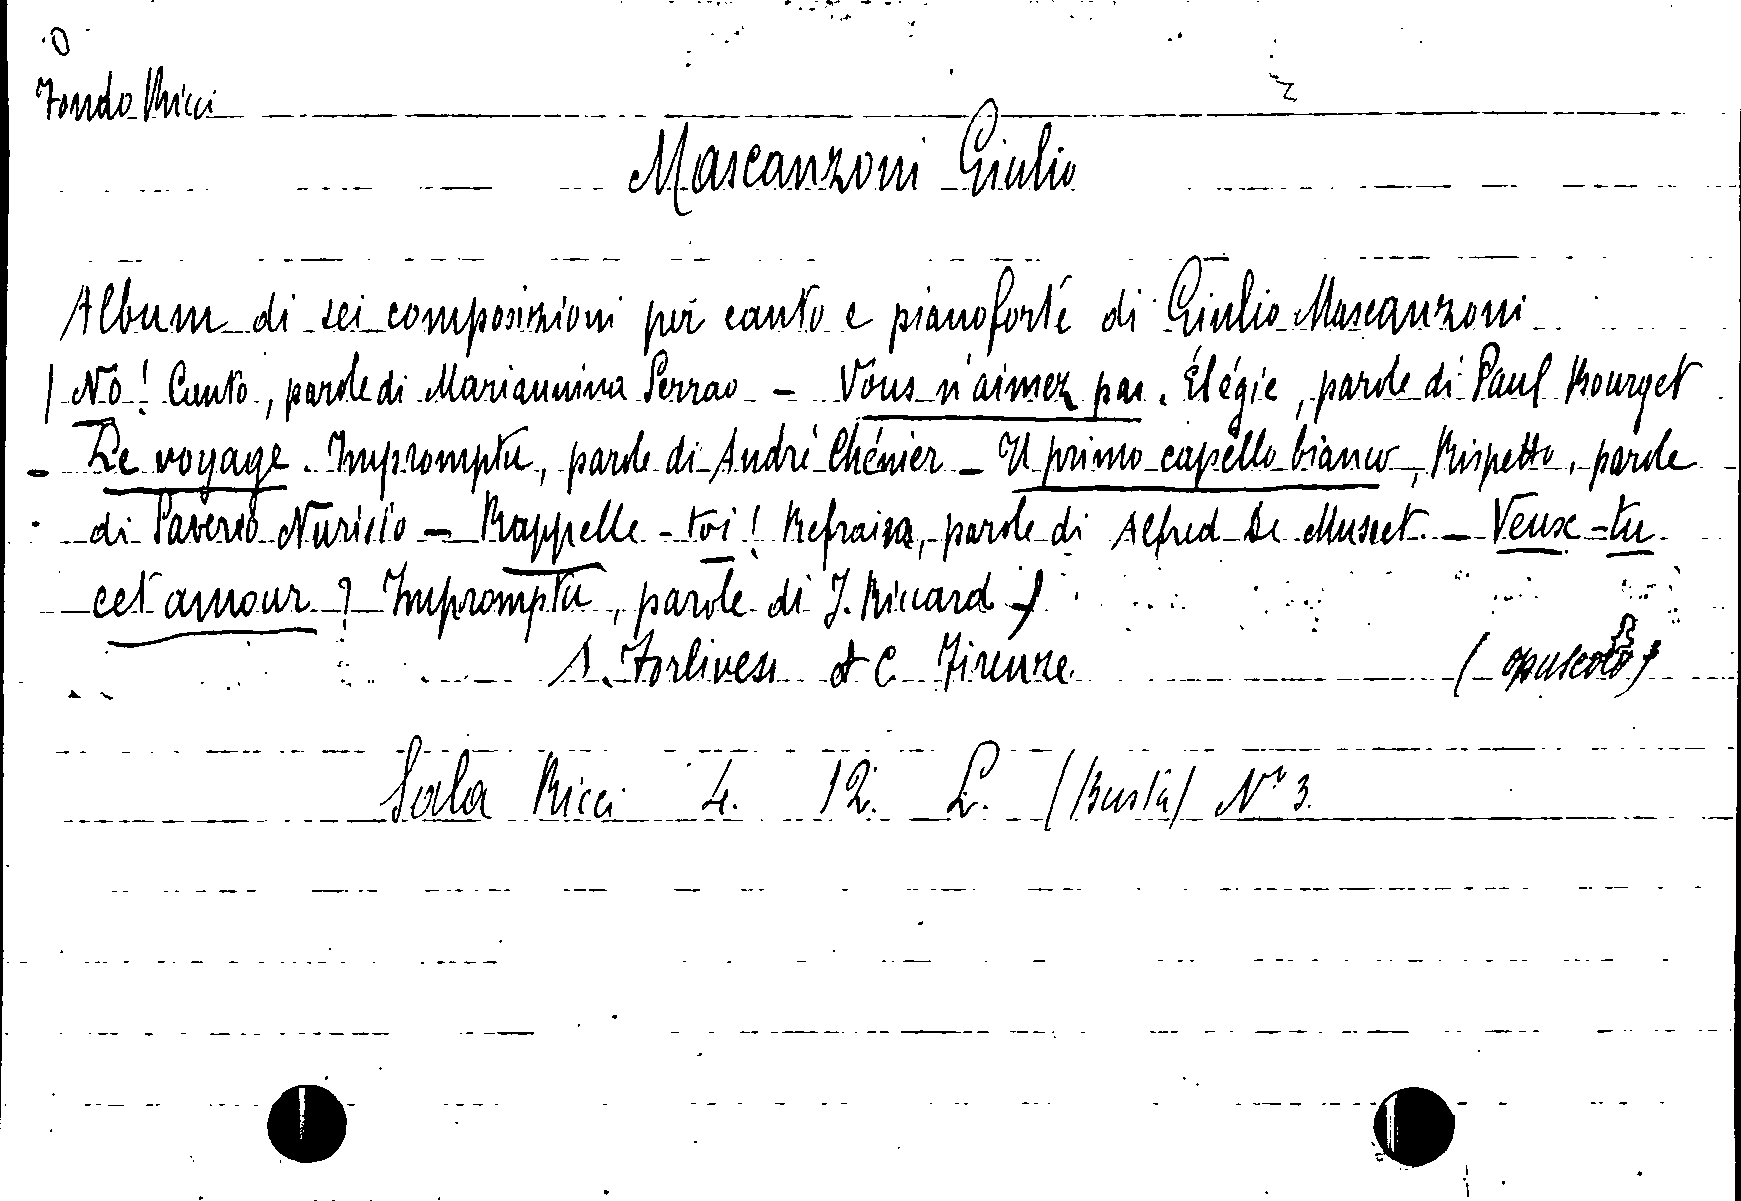 Fondo Ricci
Mascanzoni Giulio
Album di sei composizioni per canto e pianoforte di Giulio Mascanzoni
( No! Canto, parole di Mariannina Serrao - Vous n'aimez pas. Élégie, parole di Paul Bourget
- Le voyage. Impromptu, parole di André Chénier - Il primo capello bianco, Rispetto, parole
di Saverio - Rappelle-toi! Refrain, parole di Alfred De Musset. - Veux-tu
cet amour? Impromptu, parole di J. Riccard)
A. Forlivesi & C Firenze (opuscolo)
Sala Ricci 4. 12. L. (Busta) Nº 3.